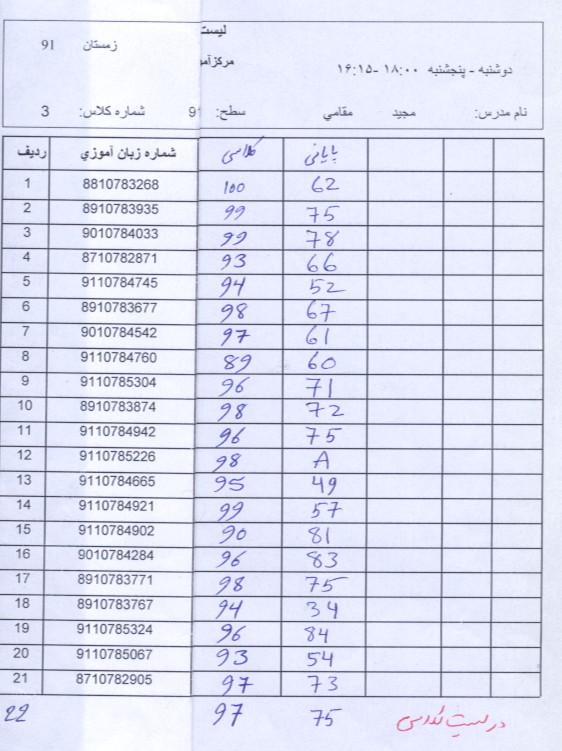 ليست
زمستان 91
مرکزآمو
دوشنبه - پنجشنبه ۱۸:۰۰ -۱۶:۱۵
نام مدرس: مجيد مقامي سطح: 9 شماره کلاس: 3
رديف شماره زبان آموزي کلاسی پایانی
1 8810783268 100 62
2 8910783935 99 75
3 9010784033 99 78
4 8710782871 93 66
5 9110784745 94 52
6 8910783677 98 67
7 9010784542 97 61
8 9110784760 89 60
9 9110785304 96 71
10 8910783874 98 72
11 9110784942 96 75
12 9110785226 98 A
13 9110784665 95 49
14 9110784921 99 57
15 9110784902 90 81
16 9010784284 96 83
17 8910783771 98 75
18 8910783767 94 34
19 9110785324 96 84
20 9110785067 93 54
21 8710782905 97 73
22 97 75 در لیست